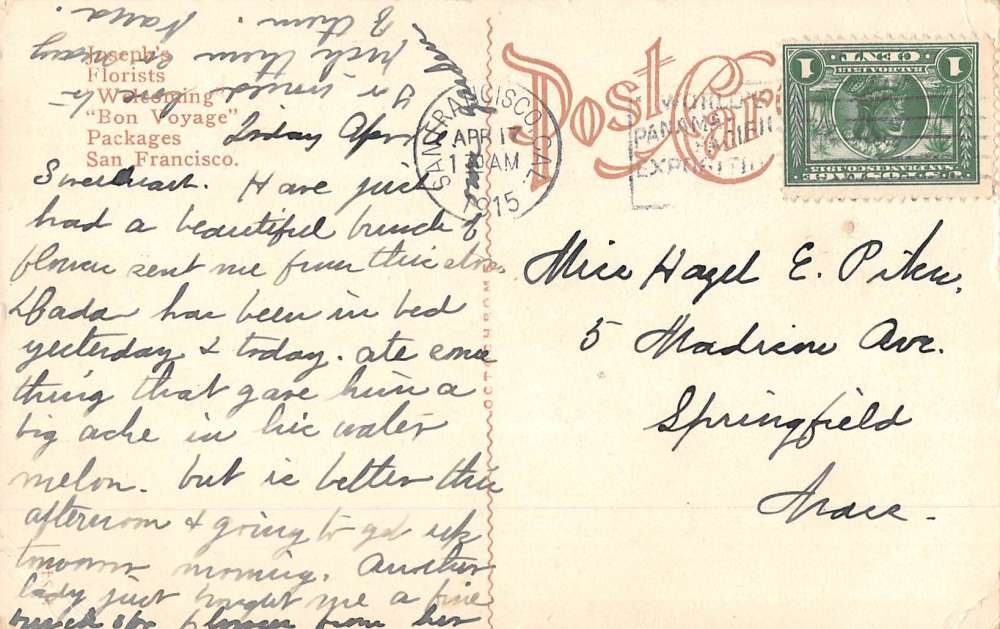 Joseph's
Florists
"Welcoming"
"Bon Voyage"
Packages
San Francisco.
Friday April 16
Sweetheart. Have just
had a beautiful bunch of
flowers sent me from this store
Dada has been in bed
yesterday & today. ate some
thing that gave him a
big ache in his water
melon. but is better this
afternoon & going to get up
tomorrow morning. Another
lady just brought me a fine
bunch of flowers from her
garden
pick them so many
of them.
Post Card
SAN FRANCISCO, CAL.
APR 17
1 30 AM
1915
WORLD'S
PANAMA
EXPOSITION
1 ONE CENT 1
BALBOA 1513
U.S. POSTAGE
SAN FRANCISCO 1915
OCTOCHROME
Miss Hazel E. Piken.
5 Madison Ave.
Springfield
Mass.